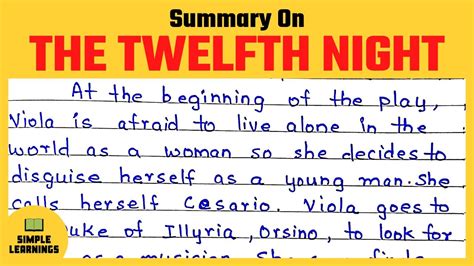 Summary On
THE TWELFTH NIGHT
At the beginning of the play,
Viola is afraid to live alone in the
world as a woman so she decides to
disguise herself as a young man. She
calls herself Cesario. Viola goes to
Duke of Illyria, Orsino, to look for
as a musician. She
SIMPLE
LEARNINGS